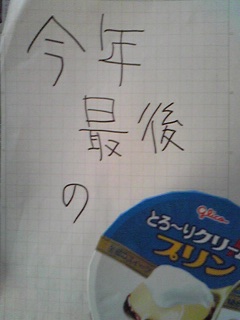 今年
最後
の
Glico
とろ〜りクリーム
プリン